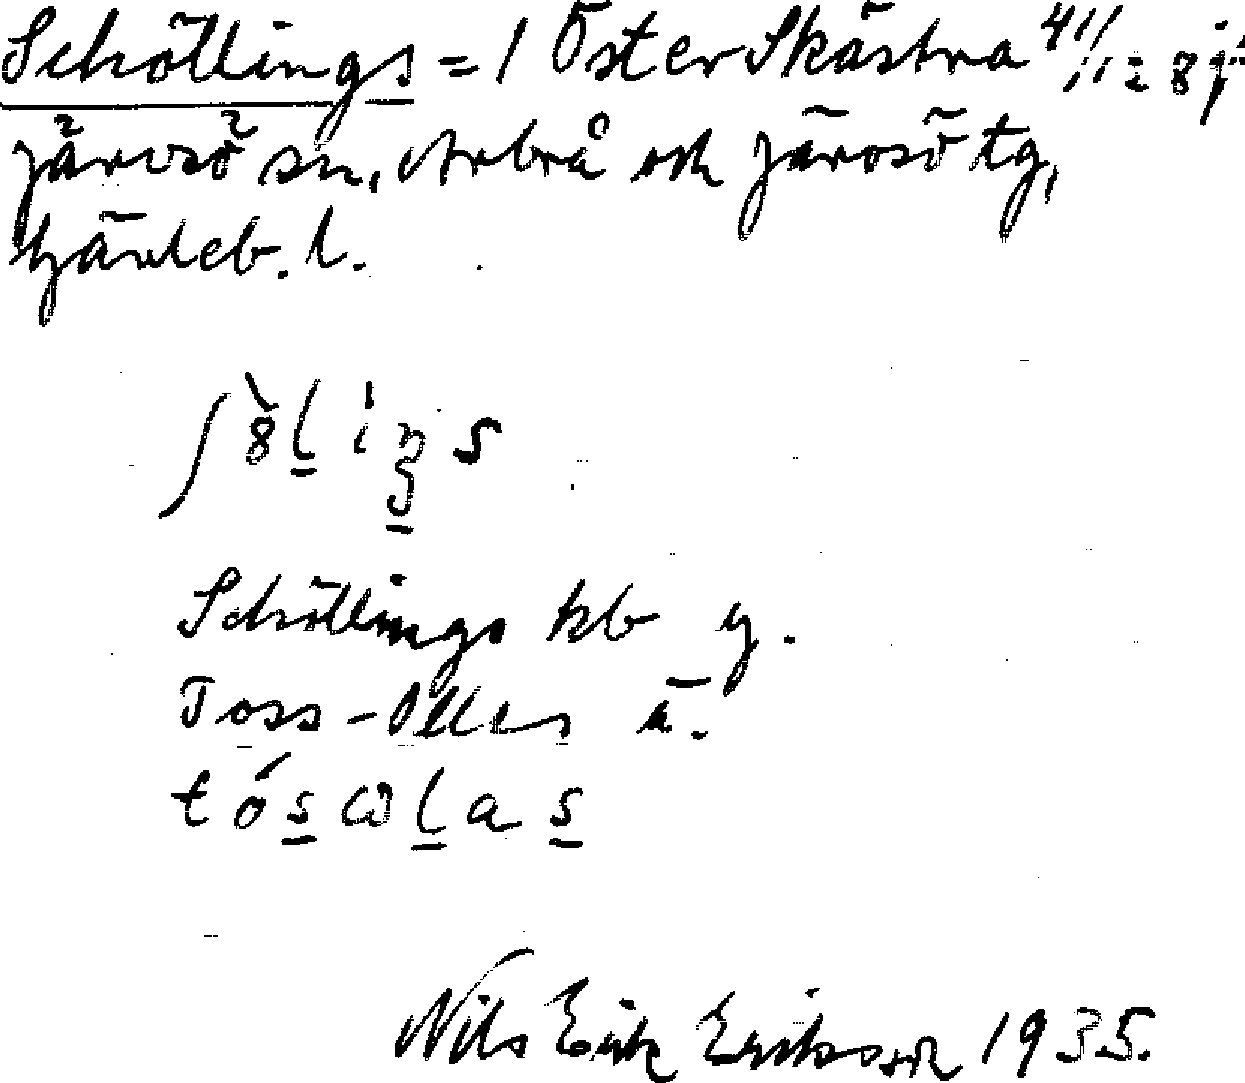 Schöllings = 1 Öster Skästra 4
Järvsö sn, Arbrå och Järvsö tg,
Gävleb. l.
ʃ8̀liŋs
Schöllings kb y.
Toss-Olles ä.
tósωlas
Nils Erik Eriksson 1935.